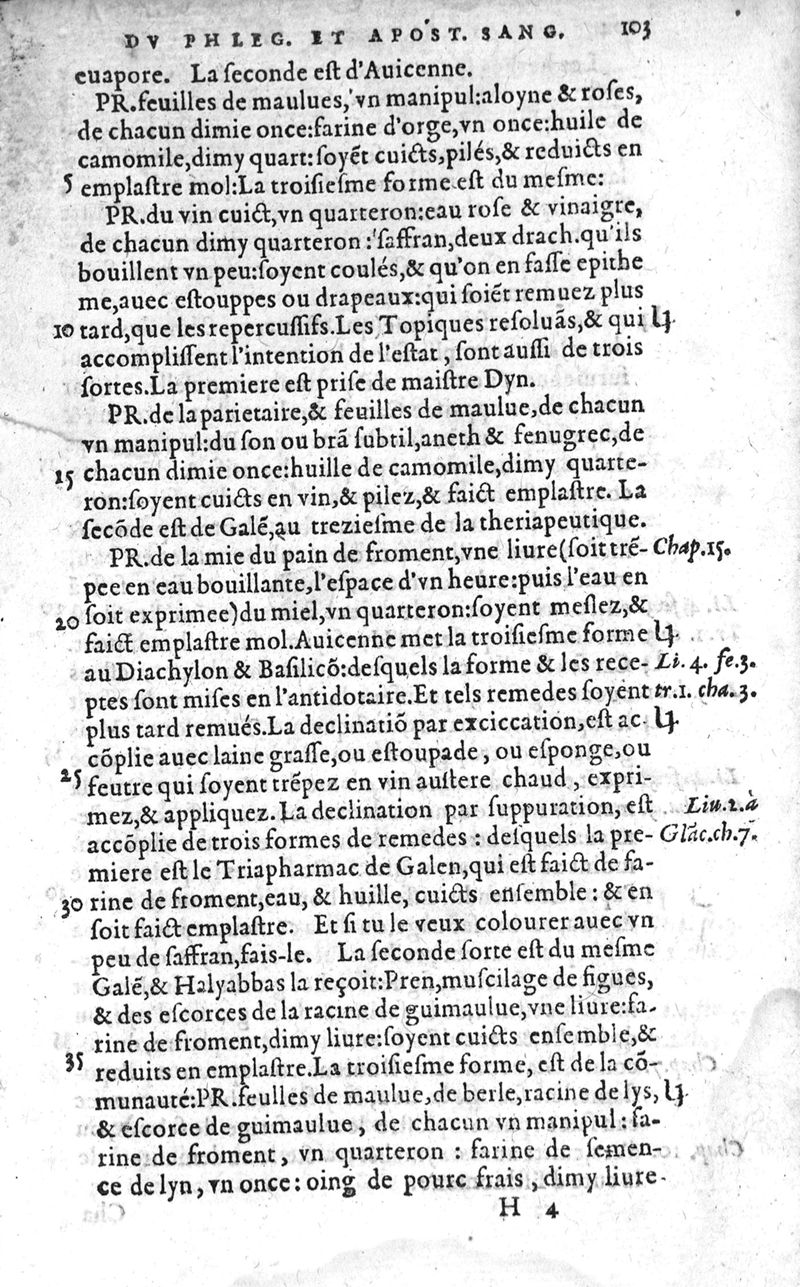 DV PHLEG. ET APOST. SANG. 103
euapore. La ſeconde eſt d'Auicenne.
PR.feuilles de maulues,vn manipul:aloyne & roſes,
de chacun dimie once:farine d'orge,vn once:huile de
camomile,dimy quart:ſoyẽt cuicts,pilés,& reduicts en
5 emplaſtre mol:La troiſieſme forme eſt du meſme:
PR.du vin cuict,vn quarteron:eau roſe & vinaigre,
de chacun dimy quarteron:ſaffran,deux drach.qu'ils
bouillent vn peu:ſoyent coulés,& qu'on en faſſe epithe
me,auec eſtouppes ou drapeaux:qui ſoiẽt remuez plus
10 tard,que les repercuſſifs.Les Topiques reſoluãs,& qui
accompliſſent l'intention de l'eſtat, ſont auſſi de trois
ſortes.La premiere eſt priſe de maiſtre Dyn.
PR.de la parietaire,& feuilles de maulue,de chacun
vn manipul:du ſon ou brã ſubtil,aneth & fenugrec,de
15 chacun dimie once:huille de camomile,dimy quarte-
ron:ſoyent cuicts en vin,& pilez,& faict emplaſtre. La
ſecõde eſt de Galẽ,au trezieſme de la theriapeutique.
PR.de la mie du pain de froment,vne liure(ſoit trẽ- Chap.15.
pee en eau bouillante,l'eſpace d'vn heure:puis l'eau en
20 ſoit exprimee)du miel,vn quarteron:ſoyent meſlez,&
faict emplaſtre mol.Auicenne met la troiſieſme forme
au Diachylon & Baſilicõ:deſquels la forme & les rece- Li. 4. fe.3.
ptes ſont miſes en l'antidotaire.Et tels remedes ſoyent tr.1. cha.3.
plus tard remués.La declinatiõ par exciccation,eſt ac
cõplie auec laine graſſe,ou eſtoupade, ou eſponge,ou
25 feutre qui ſoyent trẽpez en vin auſtere chaud, expri-
mez,& appliquez. La declination par ſuppuration, eſt Liu.2.à
accõplie de trois formes de remedes : deſquels la pre- Glãc.ch.7.
miere eſt le Triapharmac de Galen,qui eſt faict de fa-
30 rine de froment,eau, & huille, cuicts enſemble : & en
ſoit faict emplaſtre. Et ſi tu le veux colourer auec vn
peu de ſaffran,fais-le. La ſeconde ſorte eſt du meſme
Galẽ,& Halyabbas la reçoit:Pren,muſcilage de figues,
& des eſcorces de la racine de guimaulue,vne liure:fa-
rine de froment,dimy liure:ſoyent cuicts enſemble,&
35 reduits en emplaſtre.La troiſieſme forme, eſt de la cõ-
munauté:PR.feulles de maulue,de berle,racine de lys,
& eſcorce de guimaulue, de chacun vn manipul : fa-
rine de froment, vn quarteron : farine de ſemen-
ce de lyn, vn once: oing de pourc frais, dimy liure.
H 4